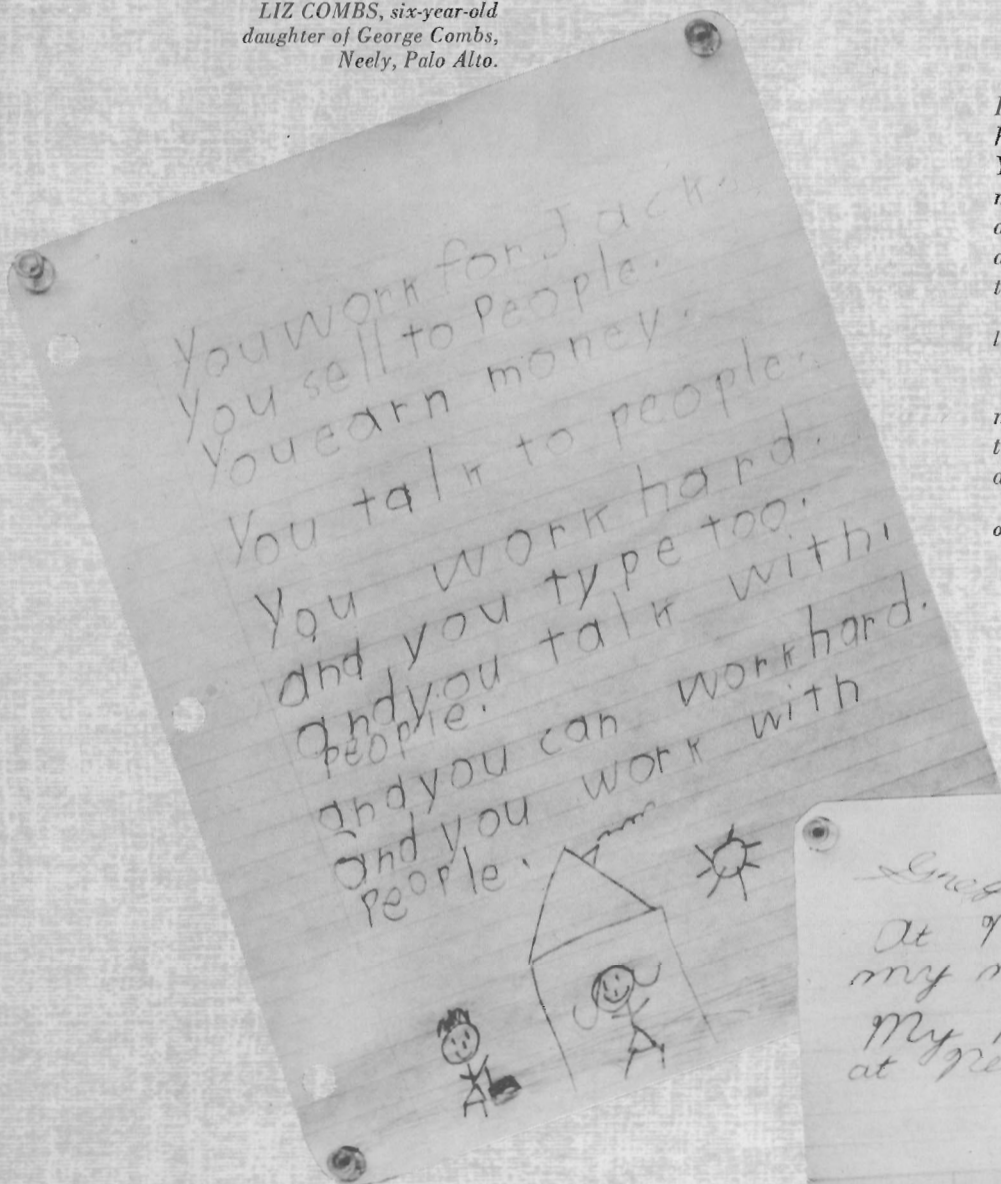 LIZ COMBS, six-year-old
daughter of George Combs,
Neely, Palo Alto.
You work for Jack.
You sell to People.
You earn money.
You talk to people.
You work hard.
and you type too.
and you talk with
people.
and you can work hard.
and you work with
people.
At
my
My
at